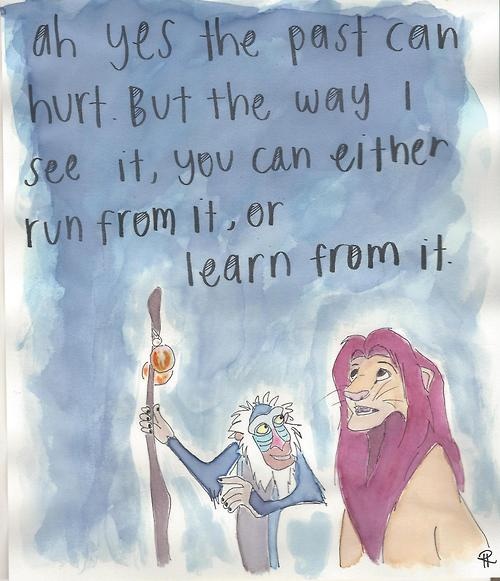 ah yes the past can
hurt. But the way I
see it, you can either
run from it, or
learn from it.